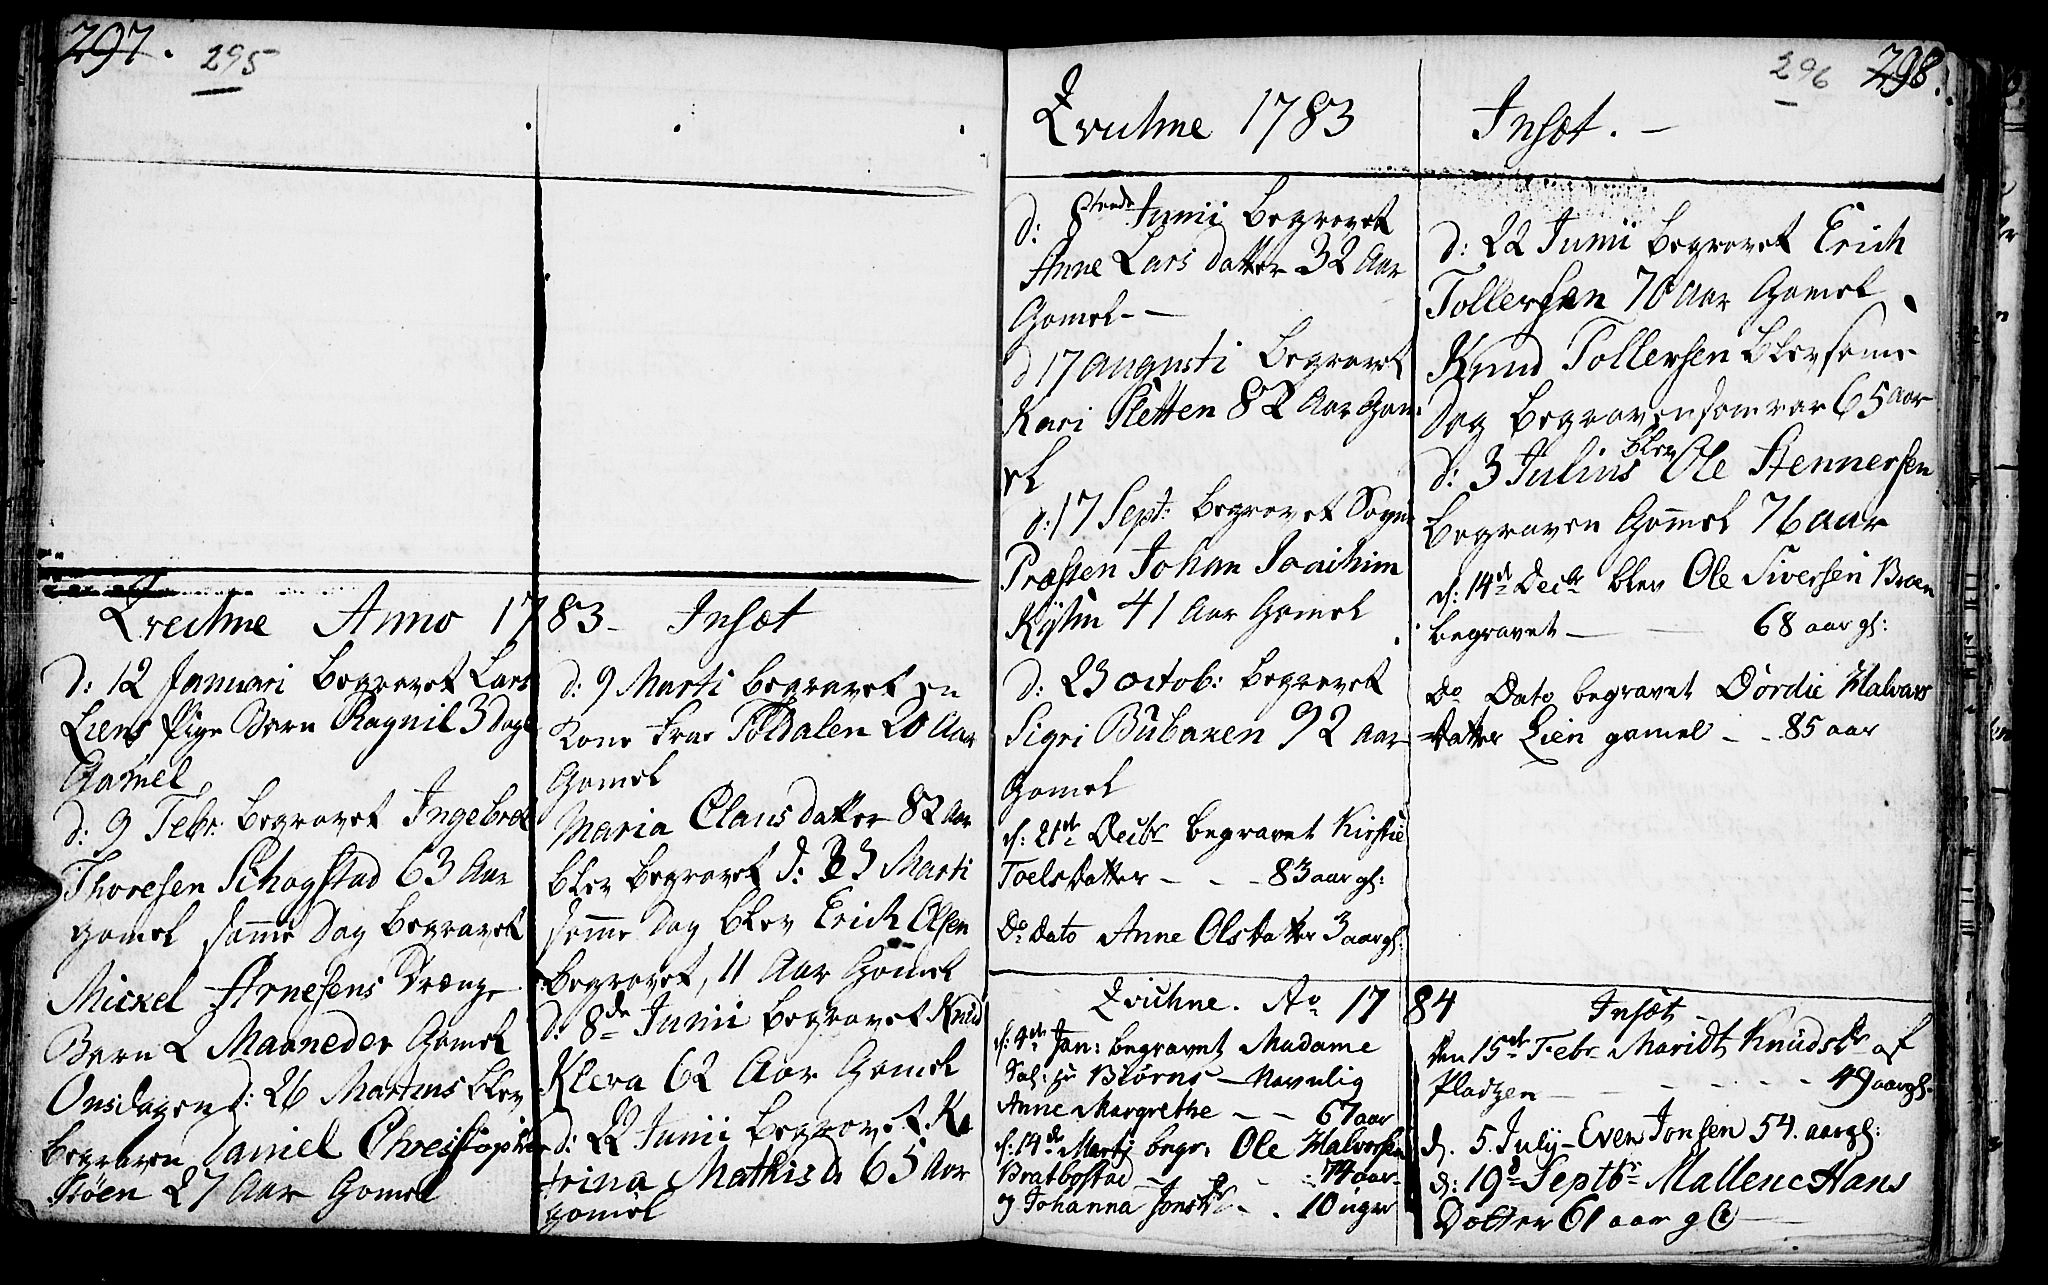 297.
295
Qvichne Anno 1783 - Insæt
d: 12 Januari begravet Lars
Liens Pige Barn Ragnil 3 Dage
Gamel
d: 9 Febr: begravet Ingebret
Thoresen Schogstad 63 Aar
gamel samme Dag begravet
Mickel Arnesens Drænge
Barn 2 Maaneder Gamel
Onsdagen d: 26 Martius blev
begraven Daniel Christopher
Støen 27 Aar Gamel
d: 9 Marti begravet en
Kone fra Foldalen 20 Aar
Gamel
Maria Clausdatter 82 Aar
blev begravet d: 23 Marti
samme Dag blev Erich Olsen
begravet, 11 Aar Gamel
d: 8de Junii begravet Knud
Kleva 62 Aar Gamel
d: 22 Junii begravet Ka
trina Mathisd. 65 Aar
gamel
296
298.
Qvichne 1783 Insæt. -
d: 8tende Junii begravet
Anne Lars datter 32 Aar
Gamel -
d 17 Augusti begravet
Kari Sletten 82 Aar Gam
el
d: 17 Sept: begravet Sogne
Præsten Johan Joachim
41 Aar Gamel
d: 23 octob: begravet
Sigri Bubaken 92 Aar
Gamel
d: 21de Decbr begravet Kirstie
Joels Datter - - - 83 aar gl:
Do Dato Anne Olsdatter 3 aar gl:
d: 22 Junii begravet Erich
Tollersen 70 Aar Gamel
Knud Tollersen blev same
Dag begraven som var 65 aar
d: 3 Julius blev Ole Stennersen
begraven Gammel 76 aar
d: 14de Decbr blev Ole Siversen Broen
begravet - - 68 aar gl:
Do Dato begravet Dordie Halvars
Datter Lien gamel - - 85 aar
Qvichne. Ao 1784 Insæt -
d: 4de Jan: begravet Madame
Sal: hr Biørns - Navnlig
Anne Margrethe - - 67 aar
d: 14de Martj begr: Ole Halvorsen
Bratbostad - - - 74 aar
og Johanna Jonsdr - . 10 uger
den 15de Febr Maridt Knudsdr af
Pladzen - - - - - 49 aar gl:
d. 5 July - Even Jonsen 54. aar gl:
d: 19de Septbr Mallene Hans
Dotter 61 aar gl